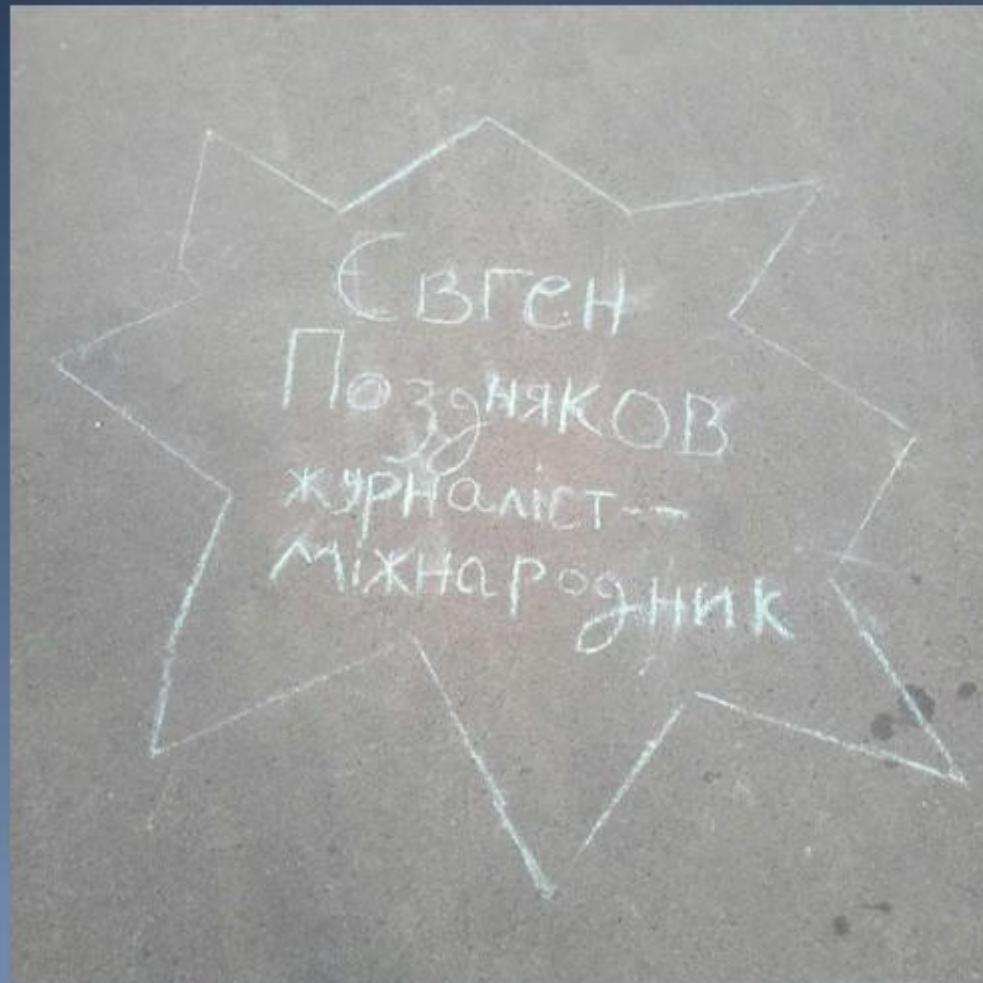 Євген
Поздняков
журналіст--
міжнародник